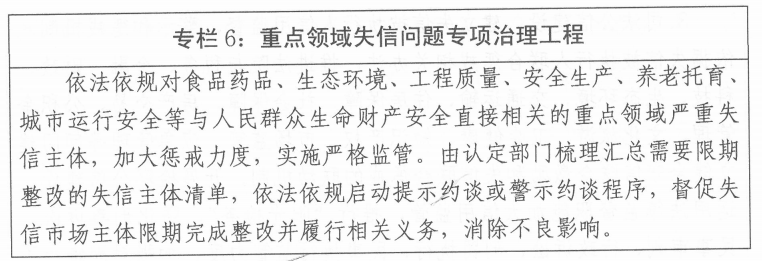 专栏 6：重点领域失信问题专项治理工程
依法依规对食品药品、生态环境、工程质量、安全生产、养老托育、
城市运行安全等与人民群众生命财产安全直接相关的重点领域严重失
信主体，加大惩戒力度，实施严格监管。由认定部门梳理汇总需要限期
整改的失信主体清单，依法依规启动提示约谈或警示约谈程序，督促失
信市场主体限期完成整改并履行相关义务，消除不良影响。